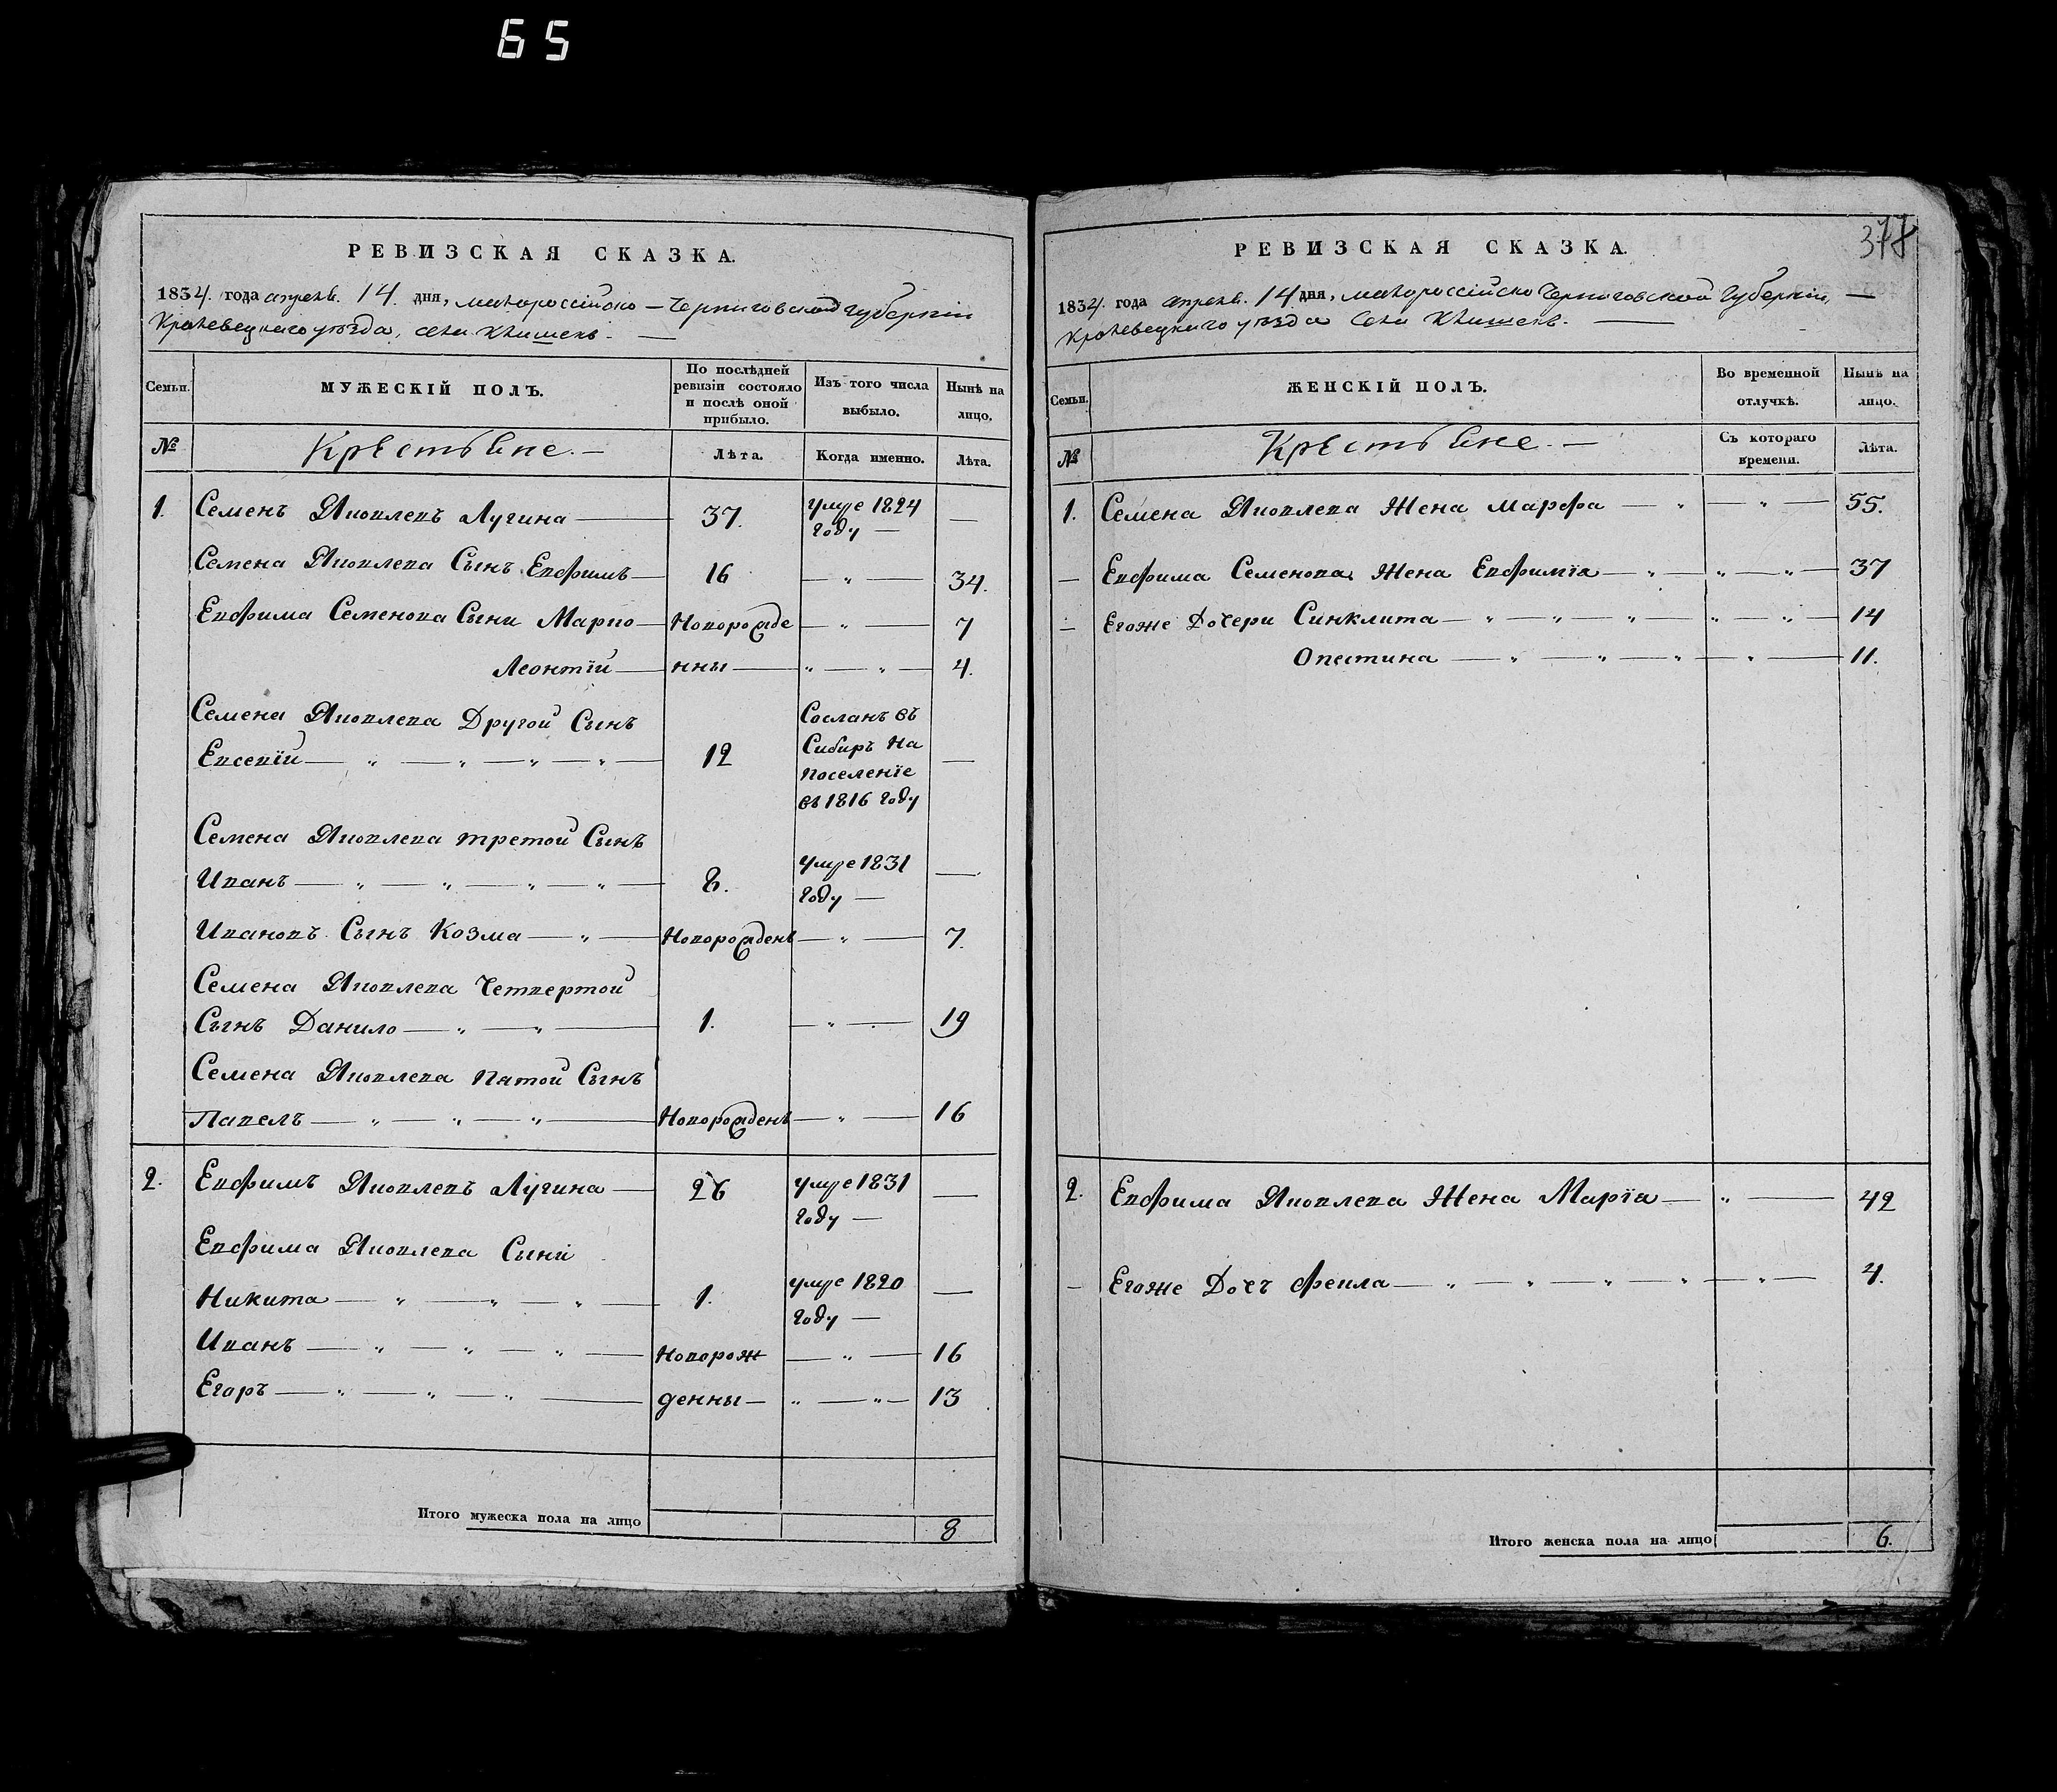 65
РЕВИЗСКАЯ СКАЗКА.
1834. года апреля. 14. дня, малороссійско - Черниговской губерніи
Кролевецкого уѣзда, села Клишекъ. -
Семьи.
МУЖЕСКІЙ ПОЛЪ.
По послѣдней ревизіи состояло и послѣ оной прибыло.
Изъ того числа выбыло.
Нынѣ на лицо.
№
Крестьяне. -
Лѣта.
Когда именно.
Лѣта.
1. Семенъ Яковлевъ Лугина — 37. умре 1824 году — —
Семена Яковлева Сынъ Евфимъ — 16 — „ — 34.
Евфима Семенова Сыни Марко — Новорожде — „ — 7
Леонтій — нны — „ — „ — 4.
Семена Яковлева Другой Сынъ
Евсевій — „ — „ — „ — „ — 12 Сосланъ въ Сибиръ на поселеніе въ 1816 году —
Семена Яковлева третой Сынъ
Иванъ — „ — „ — „ — „ — 8. умре 1831 году — —
Ивановъ Сынъ Козма — „ — Новорожденъ — „ — 7.
Семена Яковлева Четвертой
Сынъ Данило — „ — „ — 1. — „ — 19
Семена Яковлева Пятой Сынъ
Павелъ — „ — „ — „ — Новорожденъ — „ — 16
2. Евфимъ Яковлевъ Лугина — 26 умре 1831 году — —
Евфима Яковлева Сыни
Никита — „ — „ — „ — 1. умре 1820 году — —
Иванъ — „ — „ — „ — Новорож — „ — 16
Егоръ — „ — „ — „ — денны — „ — „ — 13
Итого мужеска пола на лицо 8
378
РЕВИЗСКАЯ СКАЗКА.
1834. года апреля. 14 дня, малороссійско Черниговской Губерніи, —
Кролевецкаго уѣзда Села Клишекъ. —
Семьи.
ЖЕНСКІЙ ПОЛЪ.
Во временной отлучкѣ.
Нынѣ на лицо.
№
Крестьяне. -
Съ котораго времени.
Лѣта.
1. Семена Яковлева Жена Марфа — „ — „ — 55.
— Евфима Семенова Жена Евфимія — „ — „ — „ — 37
— Егоже Дочери Синклита — „ — „ — „ — „ — „ — 14
Опестина — „ — „ — „ — „ — 11.
2. Евфима Яковлева Жена Марія — „ — 42
— Егоже Дочъ Фекла — „ — „ — „ — „ — „ — 4.
Итого женска пола на лицо 6.